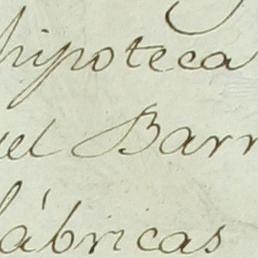 hipoteca
uel Barr
fábricas